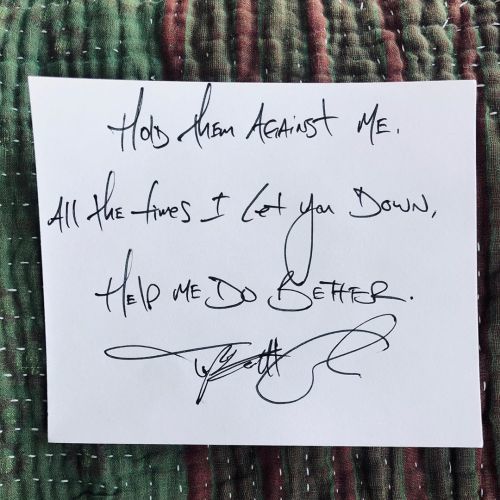 Hold them Against Me.
All the times I let you Down,
Help Me Do Better.